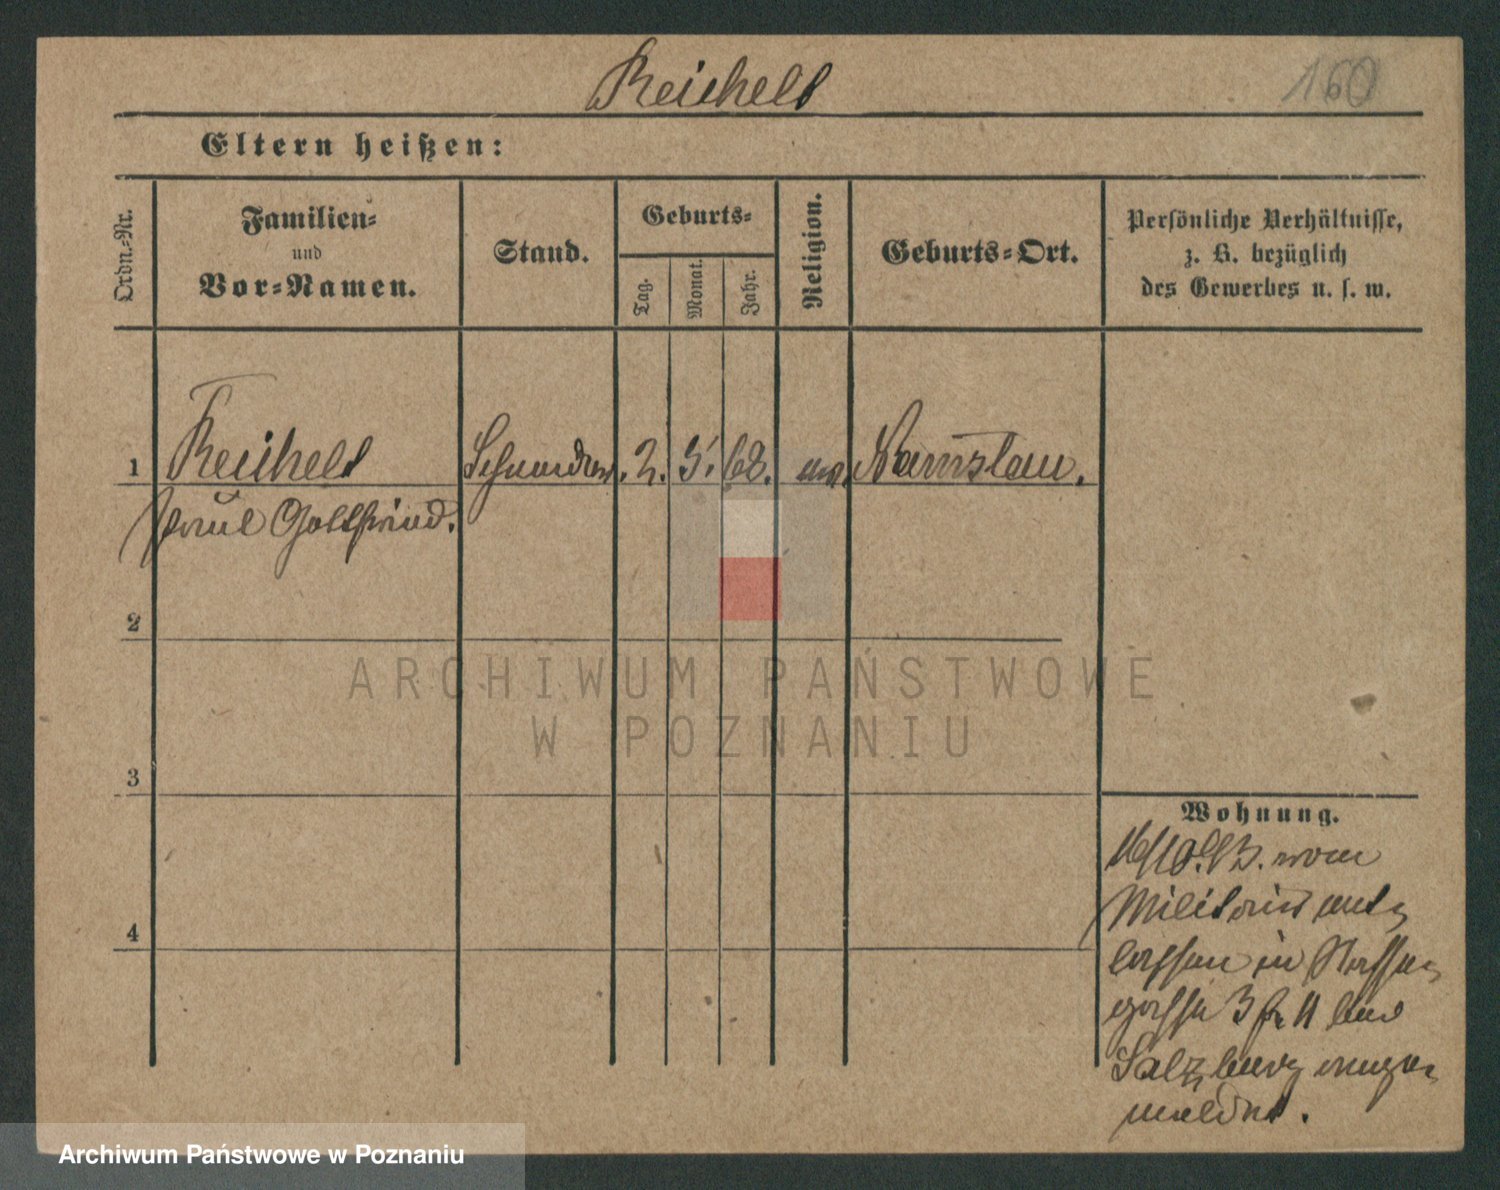 Reichelt
160
Eltern heißen:
Ordn.-Nr.
Familien-
und
Vor-Namen.
Stand.
Geburts-
Tag.
Monat.
Jahr.
Religion.
Geburts-Ort.
Persönliche Verhältnisse,
z. B. bezüglich
des Gewerbes u. s. w.
1 Reichelt Schneider .2. 3. 68. ev. Namslau.
Paul Gottfried.
2
3
4
Wohnung.
16/10.93. vom
Militair ent-
lassen in
gasse 3 fr. II bei
Salzburg ange-
meldet.
ARCHIWUM PAŃSTWOWE
W POZNANIU
Archiwum Państwowe w Poznaniu